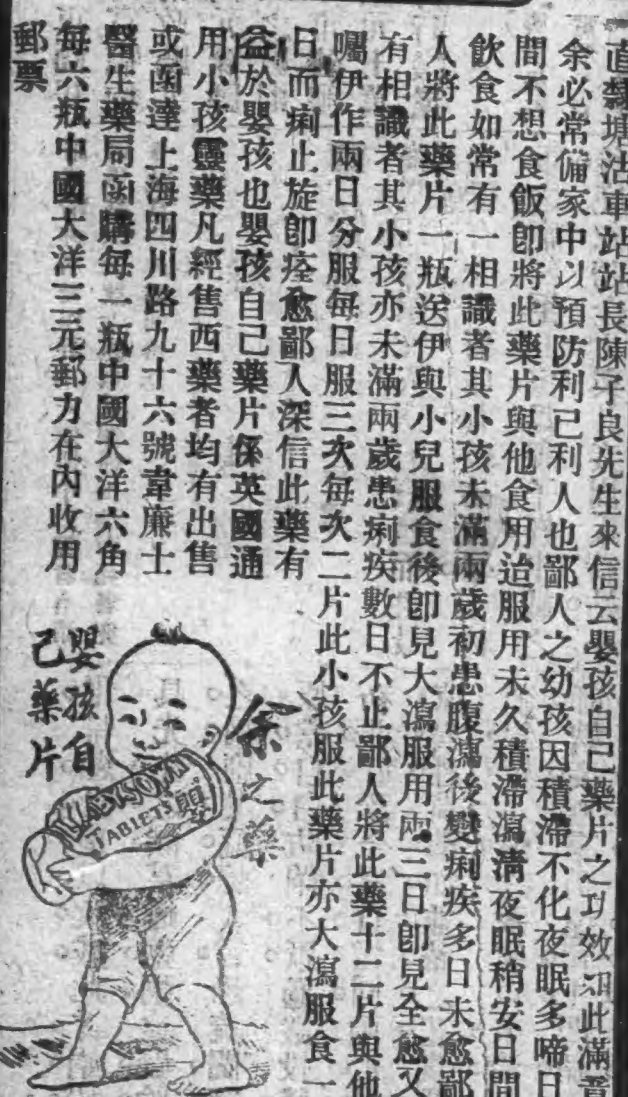 直隸塘沽車站站長陳子良先生來信云嬰孩自己藥片之功效如此滿意
余必常備家中以預防利己利人也鄙人之幼孩因積滯不化夜眠多啼日
間不想食飯卽將此藥片與他食用迨服用未久積滯瀉淸夜眠稍安日間
飲食如常有一相識者其小孩未滿兩歲初患腹瀉後變痢疾多日未愈鄙
人將此藥片一瓶送伊與小兒服食後卽見大瀉服用兩三日卽見全愈又
有相識者其小孩亦未滿兩歲患痢疾數日不止鄙人將此藥十二片與他
囑伊作兩日分服每日服三次每次二片此小孩服此藥片亦大瀉服食一
日而痢止旋卽痊愈鄙人深信此藥有
益於嬰孩也嬰孩自己藥片係英國通
用小孩靈藥凡經售西藥者均有出售
或函達上海四川路九十六號韋廉士
醫生藥局函購每一瓶中國大洋六角
每六瓶中國大洋三元郵力在內收用
郵票
余之藥
BABY'S OWN
TABLETS
嬰孩自
己藥片